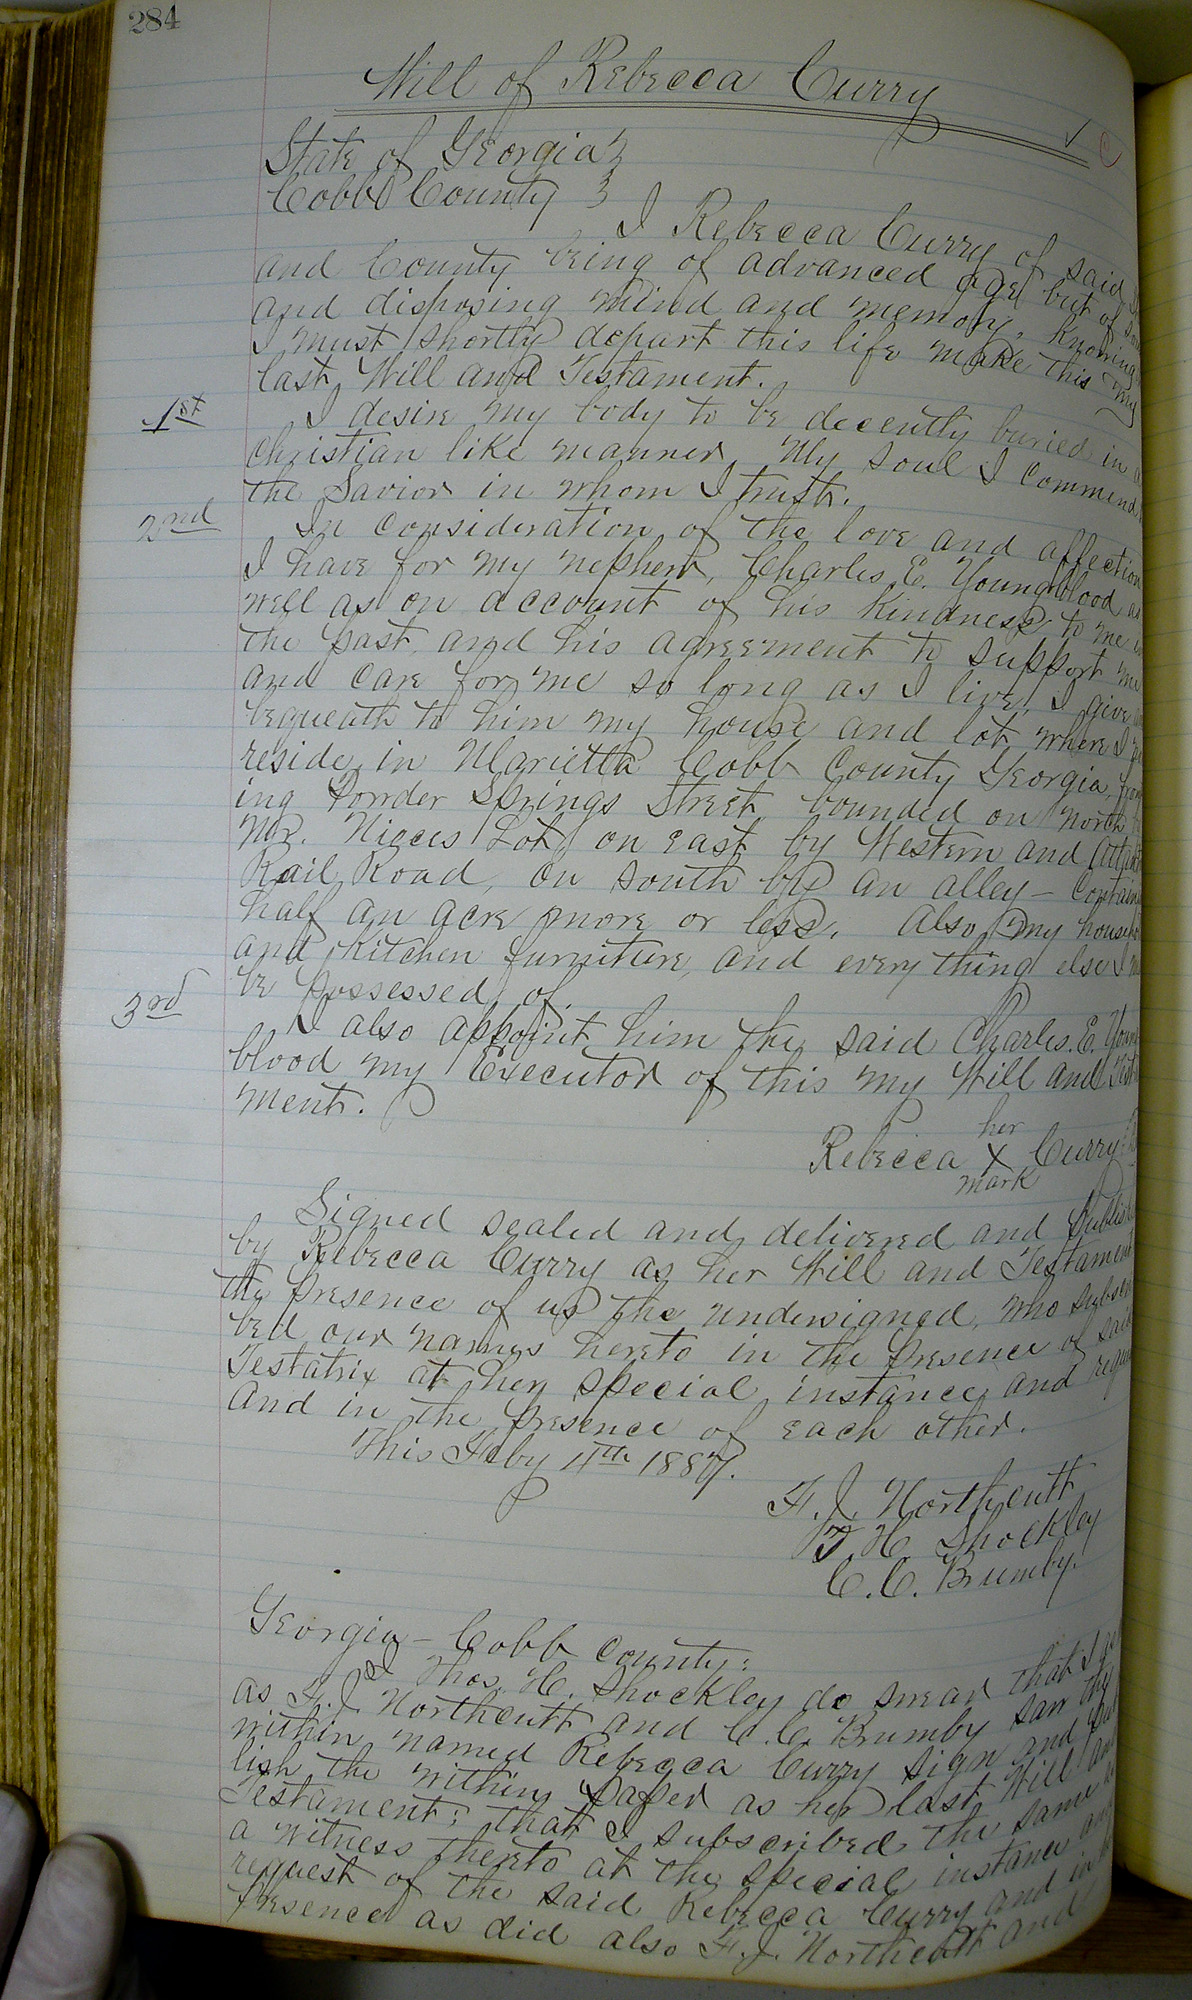 284
Will of Rebecca Curry
✓ C
State of Georgia }
Cobb County }
I Rebecca Curry of said
and County being of advanced age but of
and disposing mind and memory, knowing
I must shortly depart this life make this my
last Will and Testament.
1st I desire my body to be decently buried in a
Christian like manner, My soul I commend
the Savior in whom I trust.
2nd In consideration of the love and affection
I have for my nephew, Charles E. Youngblood as
well as on account of his kindness to me in
the past, and his agreement to support me
and care for me so long as I live, I give
bequeath to him my house and lot where I
reside, in Marietta Cobb County Georgia,
ing Powder Springs Street bounded on north
Mr. Lot, on east by Western and
Rail Road, on south by an alley -
half an acre more or less. Also my
and kitchen furniture, and everything else I
be possessed of.
3rd I also appoint him the said Charles. E.
blood my Executor of this my Will and
ment.
her
Rebecca X Curry
mark
Signed sealed and delivered and
by Rebecca Curry as her Will and Testament
the presence of us the undersigned, who
bed our names hereto in the presence of said
Testatrix at her special instance and
and in the presence of each other.
This Feby 4th 1887.
F. J. Northcutt
T. H. Shockley
C. C. Brumby.
Georgia - Cobb County:
I Thos. H. Shockley do swear that I
as F. J. Northcutt and C. C. Brumby saw the
within named Rebecca Curry sign and
lish the within paper as her last Will and
Testament; that I subscribed the same as
a witness thereto at the special instance and
request of the said Rebecca Curry and in
presence as did also F. J. Northcutt and